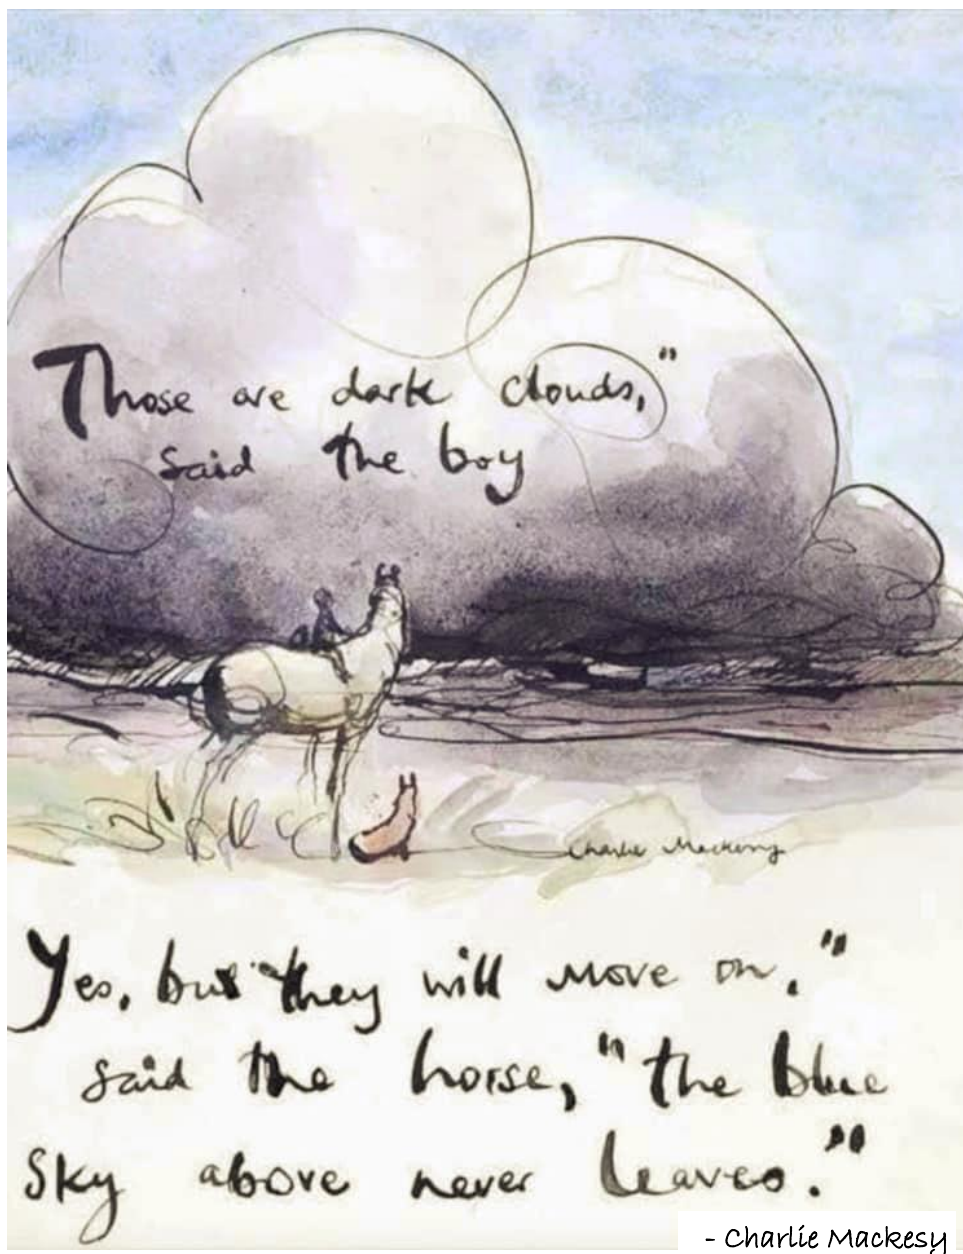 Those are dark clouds,"
said the boy
Charlie Mackesy
Yes, but they will move on,"
said the horse, "the blue
sky above never leaves."
- Charlie Mackesy